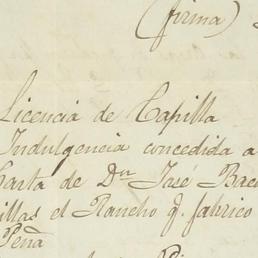 (firma)
Licencia de Capilla
Indulgencia concedida a
Carta de Dⁿ José
el Rancho q. fabrico
Peña